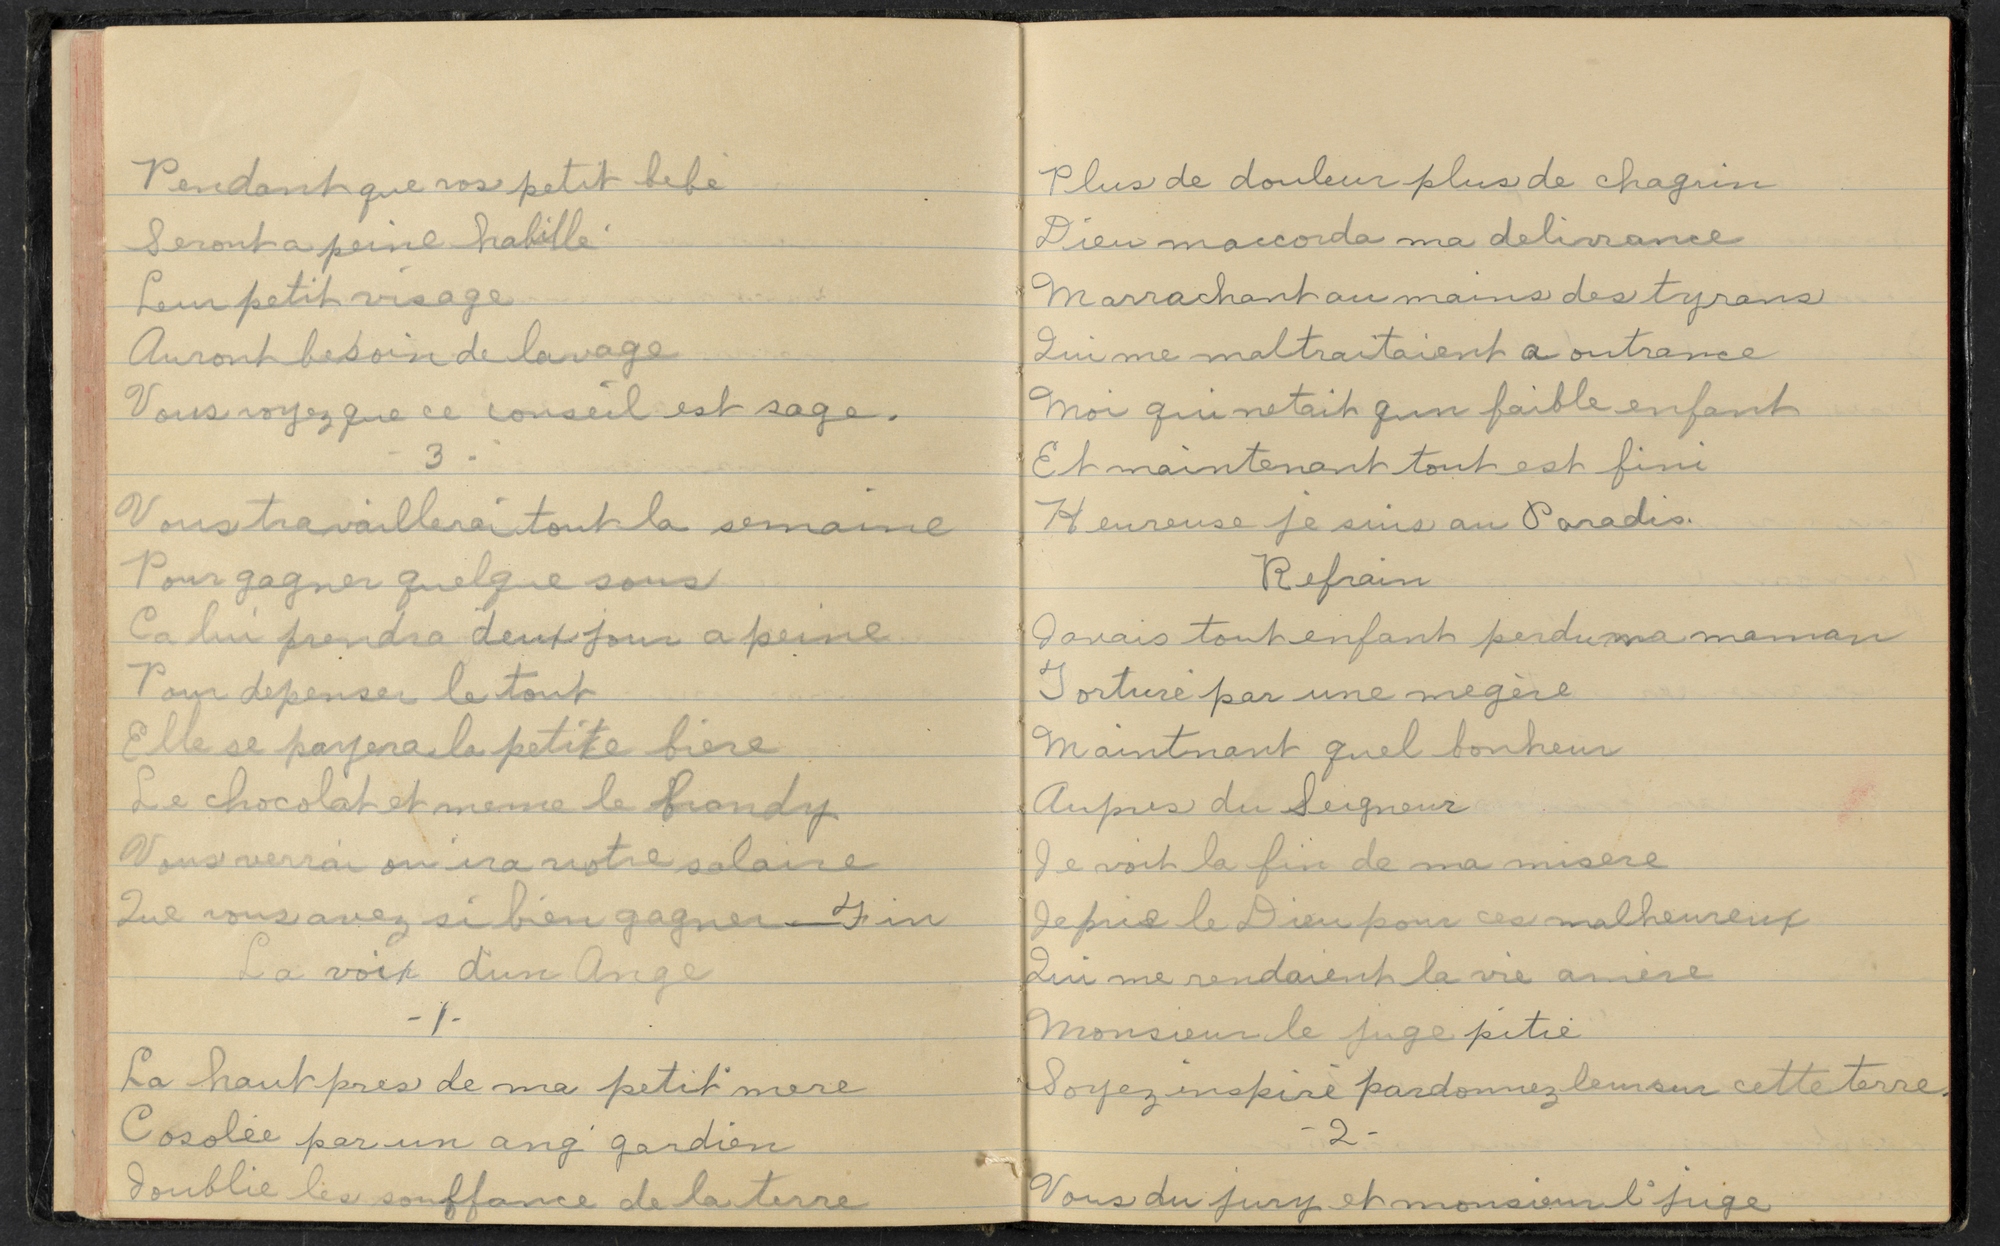 Pendant que vos petit bebé
Seront a peine habillé
Leur petit visage
Auront besoin de lavage
Vous voyez que ce conseil est sage.
- 3 -
Vous travaillerai tout la semaine
Pour gagner quelque sous
Ca lui prendra deux jour a peine
Pour depenser le tout
Elle se payera la petite biere
Le chocolat et meme le brandy
Vous verrai ou ira votre salaire
Que vous avez si bien gagner — Fin
La voix d'un Ange
- 1 -
La haut pres de ma petit' mere
Cosolée par un ang' gardien
Joublie les souffance de la terre
Plus de douleur plus de chagrin
Dieu maccorda ma delivrance
Marrachant au mains des tyrans
Qui me maltraitaient a outrance
Moi qui netait qun faible enfant
Et maintenant tout est fini
Heureuse je suis au Paradis.
Refrain
Javais tout enfant perdu ma maman
Torturé par une megère
Maintnant quel bonheur
Aupres du Seigneur
Je voit la fin de ma misere
Je prie le Dieu pour ces malheureux
Qui me rendaient la vie amère
Monsieur le juge pitié
Soyez inspiré pardonnez leur sur cette terre.
- 2 -
Vous du jury et monsieur l'juge